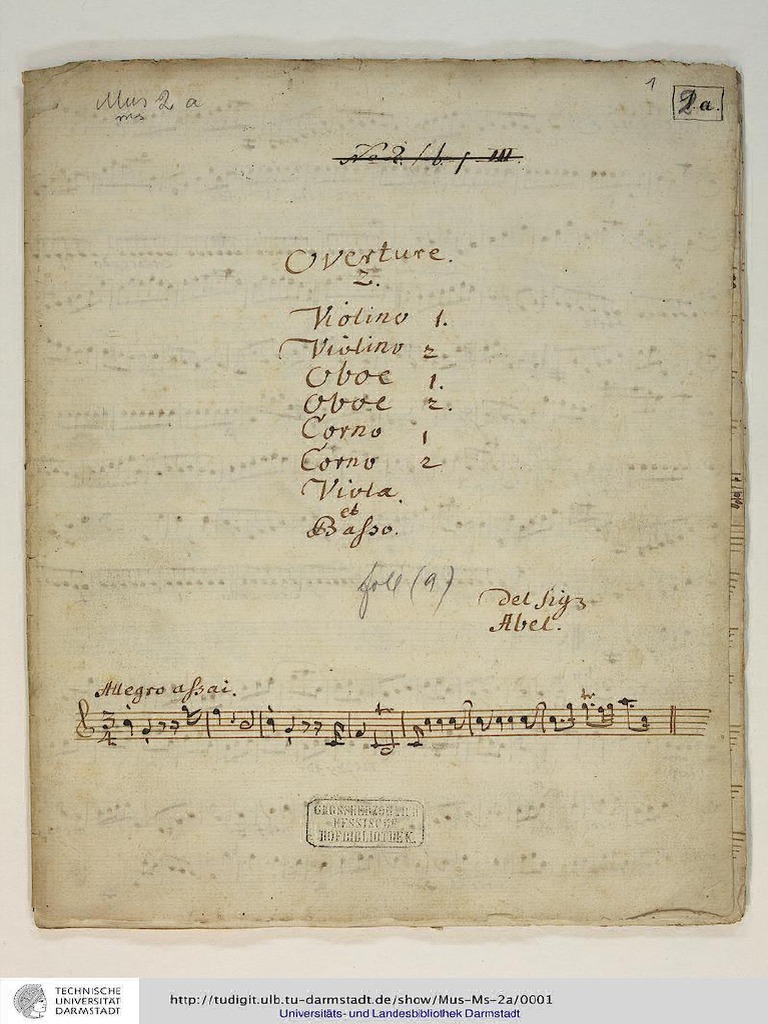 Mus 2 a
ms
1
2.a.
Overture.
2.
Violino 1.
Violino 2
Oboe 1.
Oboe 2.
Corno 1
Corno 2
Viola.
et
Basso.
foll (9)
Del Sigr
Abel.
Allegro assai.
3/4
tr
tr
GROSSHERZOGLICH
HESSISCHE
HOFBIBLIOTHEK.
TECHNISCHE
UNIVERSITÄT
DARMSTADT
http://tudigit.ulb.tu-darmstadt.de/show/Mus-Ms-2a/0001
Universitäts- und Landesbibliothek Darmstadt